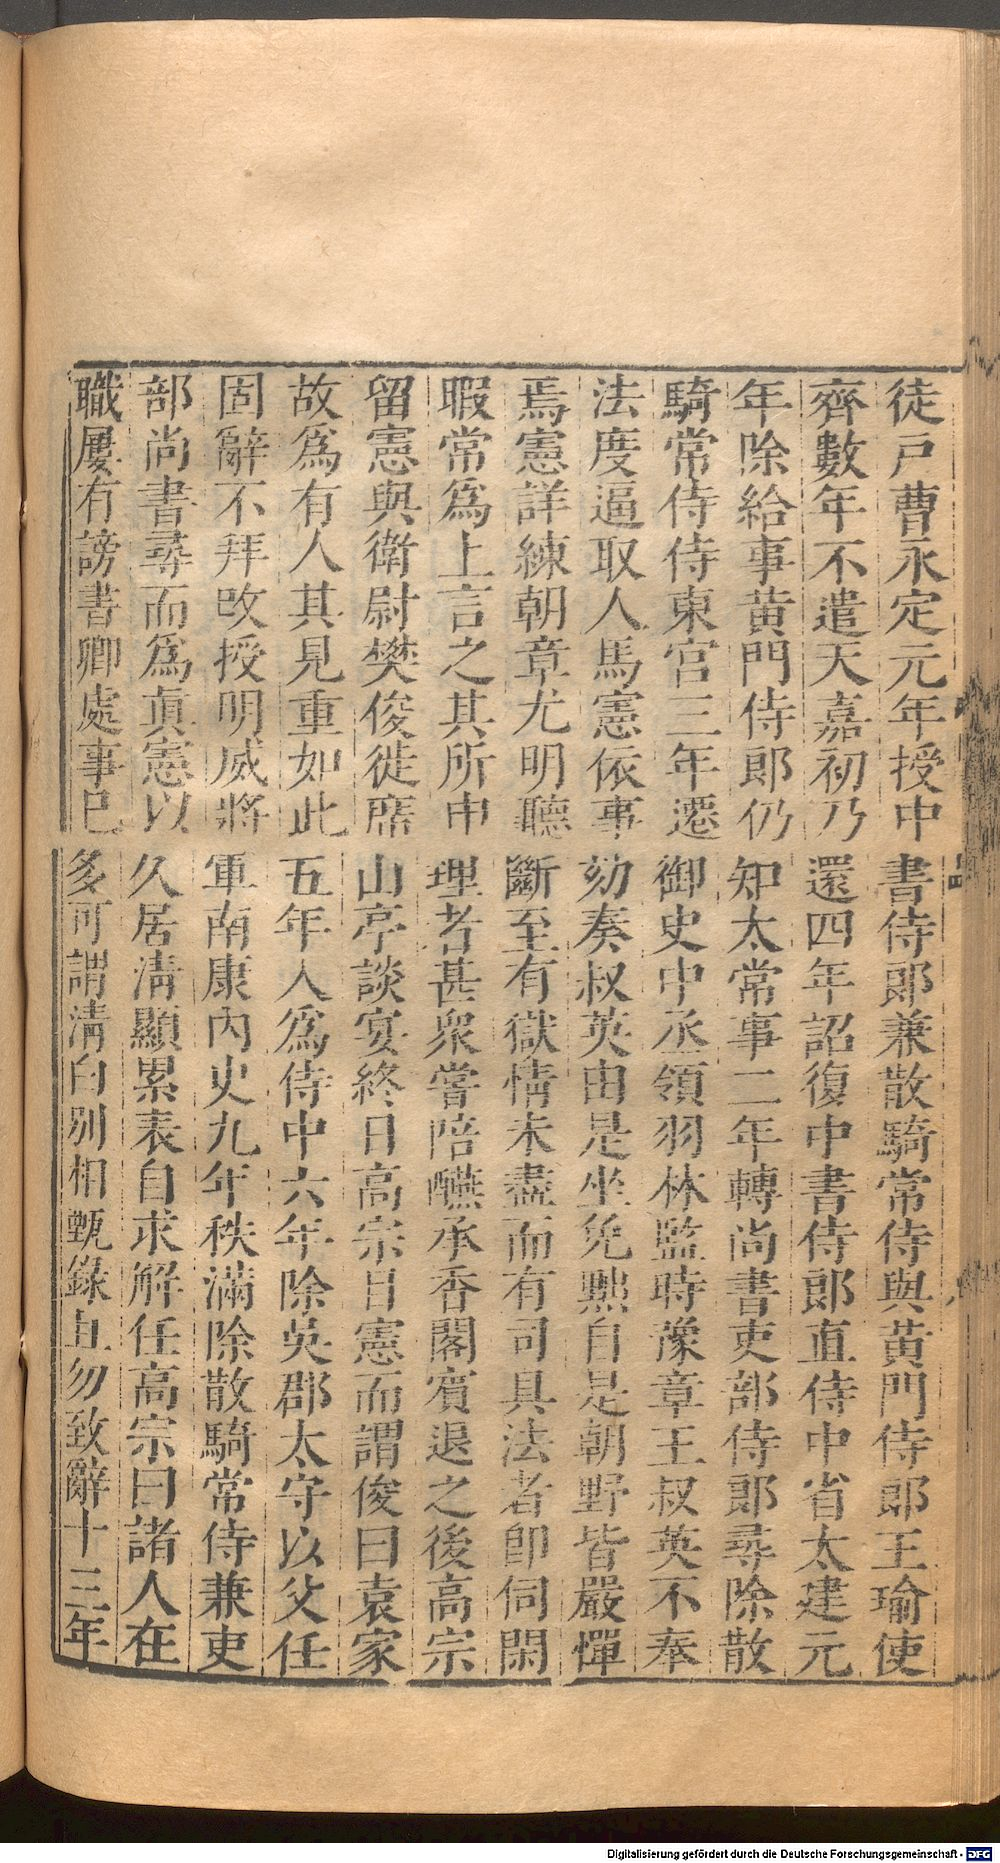 徒戸曹永定元年授中書侍郎兼散騎常侍與黃門侍郎王瑜使
齊數年不遣天嘉初乃還四年詔復中書侍郎直侍中省太建元
年除給事黃門侍郎仍知太常事二年轉尚書吏部侍郎尋除散
騎常侍侍東宮三年遷御史中丞領羽林監時豫章王叔英不奉
法度逼取人馬憲依事劾奏叔英由是坐免黜自是朝野皆嚴憚
焉憲詳練朝章尤明聽斷至有獄情未盡而有司具法者即伺閑
暇常爲上言之其所申理者甚衆嘗陪醼承香閣賓退之後高宗
留憲與衛尉樊俊徙席山亭談宴終日高宗目憲而謂俊曰袁家
故爲有人其見重如此五年入爲侍中六年除吳郡太守以父任
固辭不拜改授明威將軍南康內史九年秩滿除散騎常侍兼吏
部尚書尋而爲真憲以久居清顯累表自求解任高宗曰諸人在
職屢有謗書卿處事已多可謂清白別相甄錄且勿致辭十三年
Digitalisierung gefördert durch die Deutsche Forschungsgemeinschaft - DFG